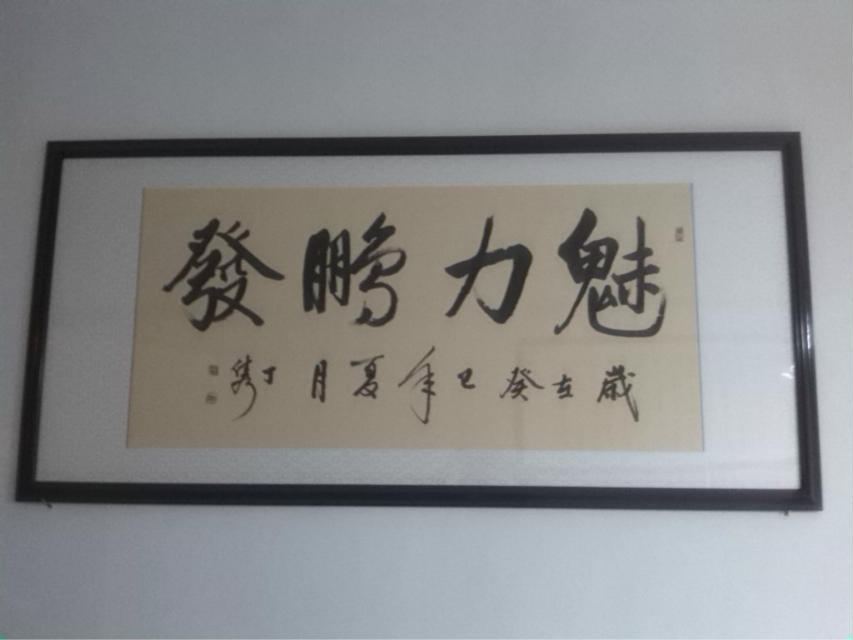 魅力鵬發
歲在癸巳年夏月丁